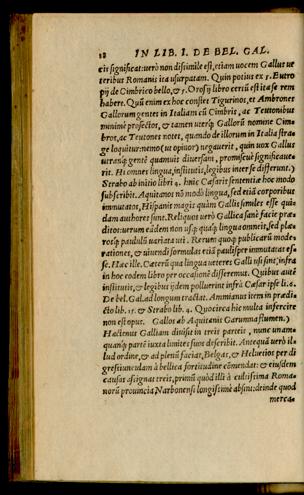 18 IN LIB. I. DE BEL. GAL.
cit significat: verò non dissimile est, etiam vocem Gallus ve
teribus Romanis ita usurpatam. Quin potius ex 5. Eutro
pij de Cimbrico bello, & 5. Orosij libro certū est ita se rem
habere. Quū enim ex hoc constet Tigurinos, et Ambrones
Gallorum gentes in Italiam cū Cimbris, ac Teutonibus
minimè profectos, & tamen uterq; Gallorū nomine Cim-
bros, ac Teutones notet, quando de illorum in Italia stra-
ge loquitur: nemo (ut opinor) negauerit, quin uox Gallus
utranq; gentē quamuis diuersam, promiscuè significaue-
rit. Hi omnes lingua, institutis, legibus inter se differunt.)
Strabo ab initio libri 4. huic Cæsaris sententiæ hoc modo
subscribit. Aquitanos nō modò lingua, sed etiā corporibus
immutatos, Hispanis magis quàm Gallis similes esse qui-
dam authores sunt. Reliquos verò Gallica sanè facie præ-
ditos: uerum eādem non usq; quāq; lingua omneis, sed ple-
rosq; paululū variata uti. Rerum quoq; publicarū mode-
rationes, & uiuendi formulas etiā paulisper immutatas es-
se. Hæc ille. Cæterū qua lingua ueteres Galli usi sint, infra
in hoc eodem libro per occasionē differemus. Quibus autē
institutis, & legibus ijdem pollerint infrà Cæsar ipse li. 6.
De bel. Gal. ad longum tractat. Ammianus item in prædi-
cto lib. 15. & Strabo lib. 4. Quocirca hic multa inserere
non est opus. Gallos ab Aquitanis Garumna flumen.)
Hactenus Galliam diuisit in treis parteis, nunc unam-
quanq; partē iuxta limites suos describit. Antequā verò il-
lud ordine, & ad plenū faciat, Belgas, & Heluetios per di
gressiunculam à bellica fortitudine cōmendat: & eiusdem
causas assignat treis, primū quòd illi à cultissima Roma-
norū prouincia Narbonensi longissimè absint: deinde quod
merca-